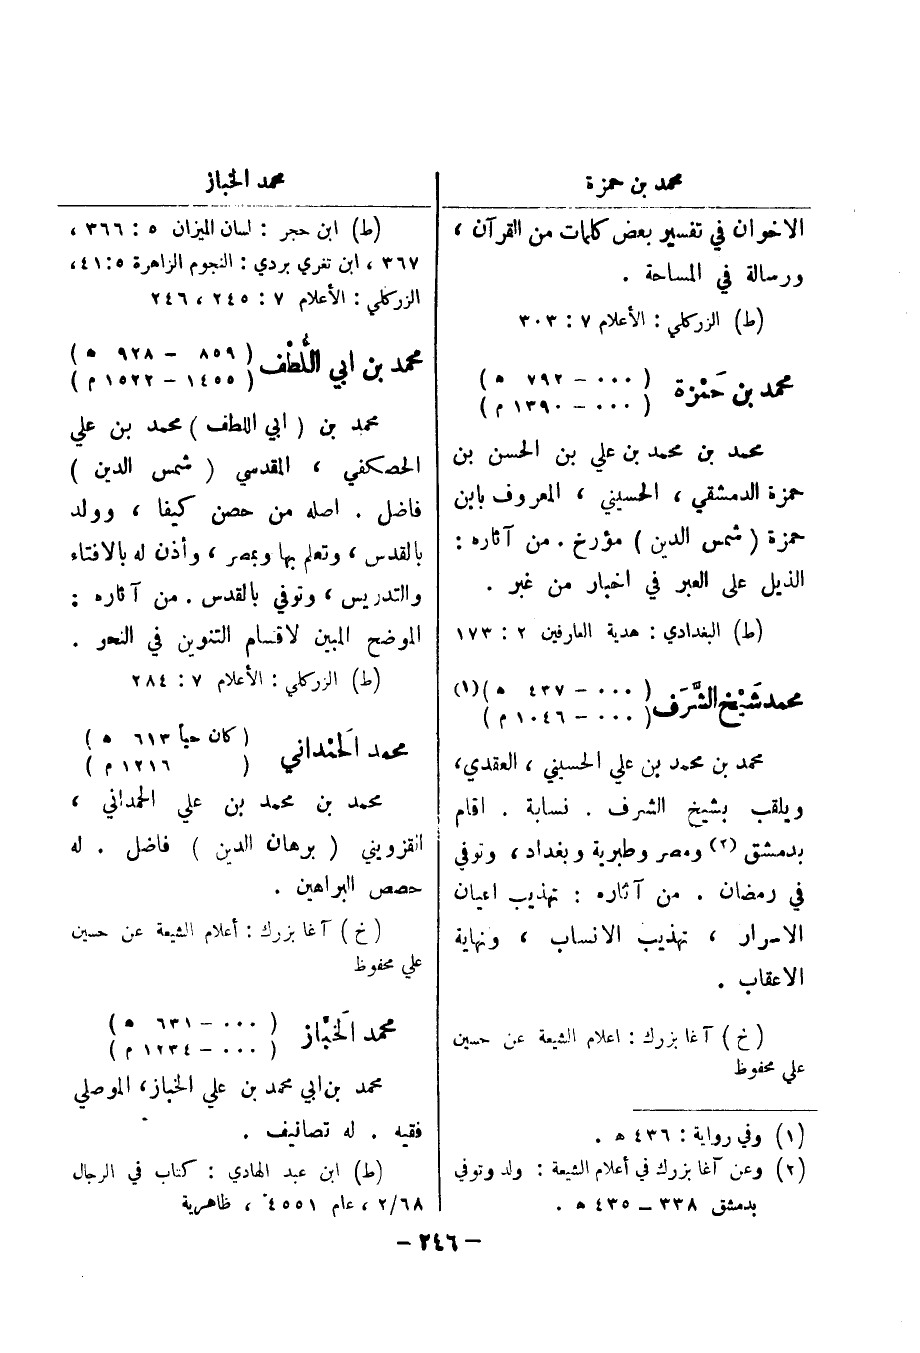 محمد بن حمزة
الاخوان في تفسير بعض كلمات من القرآن ،
ورسالة في المساحة .
(ط) الزركلي : الأعلام ٧ : ٣٠٣
محمد بن حَمْزة ( ٠٠٠ – ٧٩٢ ه )
( ٠٠٠ – ١٣٩٠ م )
محمد بن محمد بن علي بن الحسن بن
حمزة الدمشقي ، الحسيني ، المعروف بابن
حمزة ( شمس الدين ) مؤرخ . من آثاره :
الذيل على العبر في اخبار من غبر .
(ط) البغدادي : هدية العارفين ٢ : ١٧٣
محمد شَيْخ الشَّرَف ( ٠٠٠ – ٤٣٧ ه )(١)
( ٠٠٠ – ١٠٤٦ م )
محمد بن محمد بن علي الحسيني ، العقدي،
ويلقب بشيخ الشرف . نسابة . اقام
بدمشق (٢) ومصر وطبرية وبغداد ، وتوفي
في رمضان . من آثاره : تهذيب اعيان
الاسرار ، تهذيب الانساب ، ونهاية
الاعقاب .
(خ) آغا بزرك : اعلام الشيعة عن حسين
علي محفوظ
(١) وفي رواية : ٤٣٦ ه .
(٢) وعن آغا بزرك في أعلام الشيعة : ولد وتوفي
بدمشق ٣٣٨ – ٤٣٥ ه .
محمد الخباز
(ط) ابن حجر : لسان الميزان ٥ : ٣٦٦ ،
٣٦٧ ، ابن تغري بردي : النجوم الزاهرة ٥ : ٤١ ،
الزركلي : الأعلام ٧ : ٢٤٥ ، ٢٤٦
محمد بن ابي اللُّطْف ( ٨٥٩ – ٩٢٨ ه )
( ١٤٥٥ – ١٥٢٢ م )
محمد بن ( ابي اللطف ) محمد بن علي
الحصكفي ، المقدسي ( شمس الدين )
فاضل . اصله من حصن كيفا ، وولد
بالقدس ، وتعلم بها وبمصر ، وأذن له بالافتاء
والتدريس ، وتوفي بالقدس . من آثاره :
الموضح المبين لاقسام التنوين في النحو .
(ط) الزركلي : الأعلام ٧ : ٢٨٤
محمد الَحمْداني ( كان حياً ٦١٣ ه )
( ١٢١٦ م )
محمد بن محمد بن علي الحمداني ،
القزويني ( برهان الدين ) فاضل . له
حصص البراهين .
(خ) آغا بزرك : أعلام الشيعة عن حسين
علي محفوظ
محمد الَخبَّاز ( ٠٠٠ – ٦٣١ ه )
( ٠٠٠ – ١٢٣٤ م )
محمد بن ابي محمد بن علي الخباز، الموصلي
فقيه . له تصانيف .
(ط) ابن عبد الهادي : كتاب في الرجال
٢/٦٨ ، عام ٤٥٥١ ، ظاهرية
– ٢٤٦ –